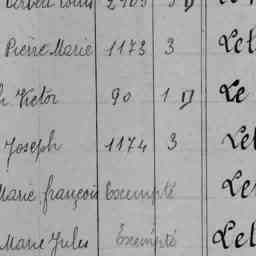 Pierre Marie 1173 3 Lel
h Victor 90 1 D Le
Joseph 1174 3 Lel
Marie françois Exempté Le
Marie Jules Exempté Lel